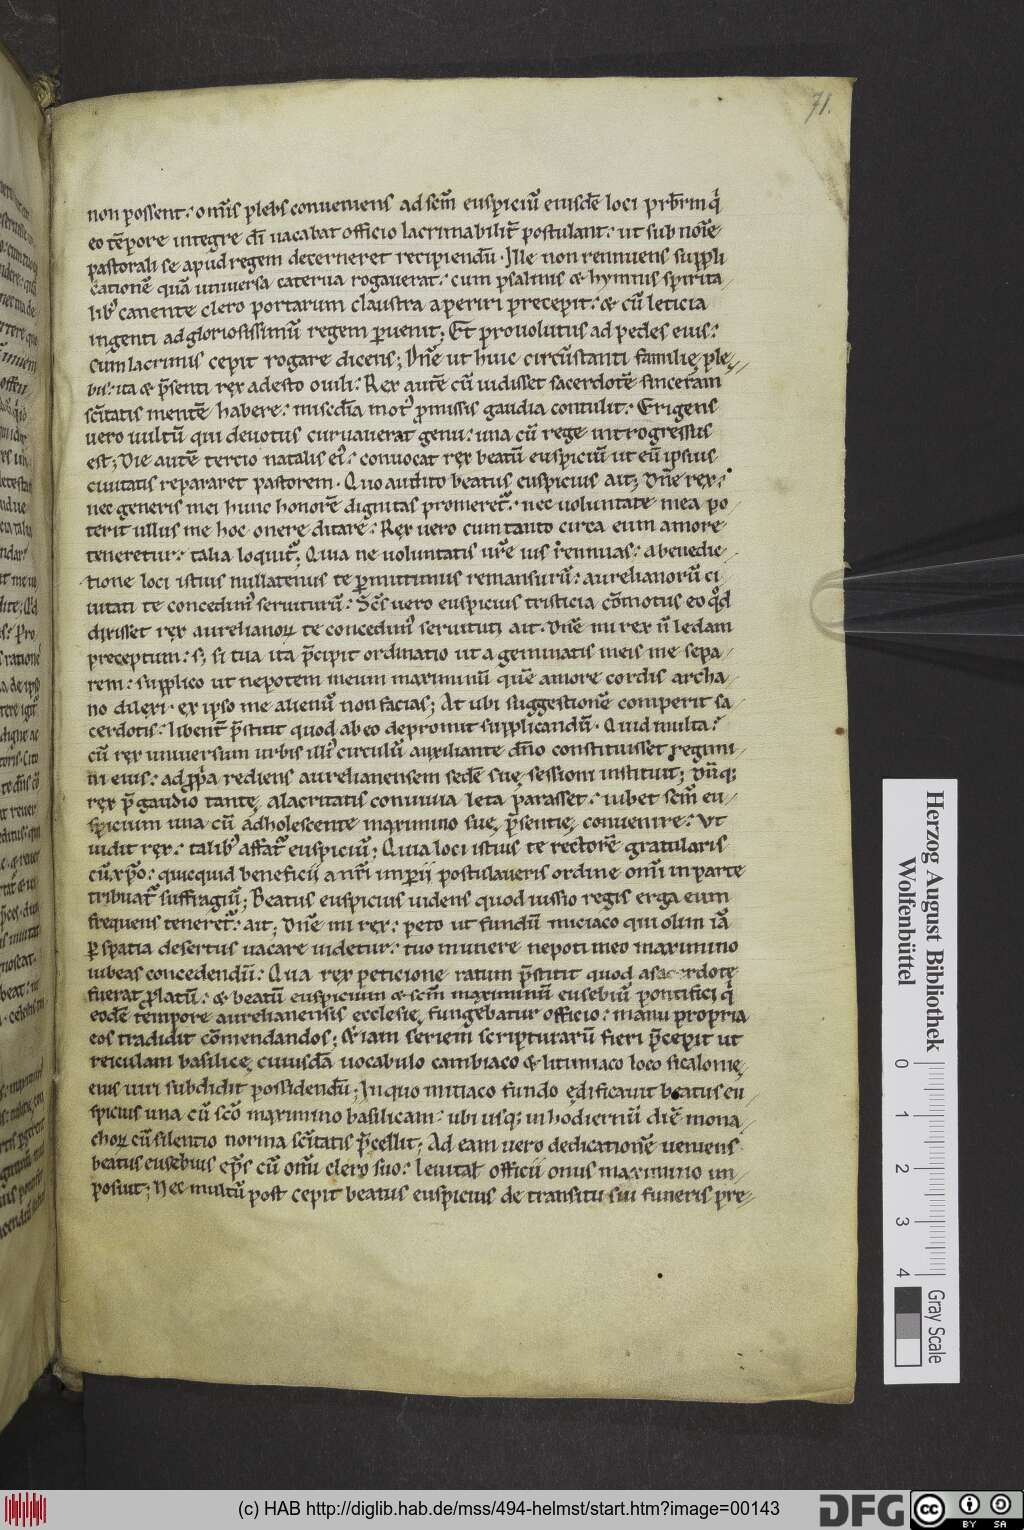 71.
non possent. om̄s plebs conueniens ad sc̄m euspiciū eiusdē loci prb̄rm qͥ
eo tēpore integre dī uacabat officio lacrimabilit̄ postulant. ut sub noīe
pastorali se apud regem decerneret recipiendū. Ille non rennuens suppli
cationē quā uniuersa caterua rogauerat. cum psalmis & hymnis spirita-
lib' canente clero portarum claustra aperiri precepit. & cū leticia
ingenti ad gloriosissimū regem ꝑuenit; Et prouolutus ad pedes eius.
cum lacrimis cepit rogare dicens; Dn̄e ut huic circūstanti familię ple-
bis. ita & p̄senti rex adesto ouili. Rex autē cū uidisset sacerdotē sinceram
sc̄itatis mentē habere. misc̄dia mot' ꝓmissis gaudia contulit. Erigens
uero uultū qui deuotus curuauerat genu. una cū rege introgressus
est; Die autē tercio natalis ei'. conuocat rex beatū euspiciū ut eū ipsius
ciuitatis repararet pastorem. Quo audito beatus euspicius ait; Dn̄e rex.
nec generis mei hunc honorē dignitas promeret̄. nec uoluntate mea po
terit ullus me hoc onere ditare. Rex uero cum tanto circa eum amore
teneretur. talia loquit̄; Quia ne uoluntatis ur̄e ius rennuas. a benedic-
tione loci istius nullatenus te ꝑmittimus remansurū. aurelianorū ci
uitati te concedim' seruiturū. Sc̄s uero euspicius tristicia cōmotus eo qͦd
dixisset rex aurelianoꝝ te concedim' seruituti ait. Dn̄e mi rex n̄ ledam
preceptum. s; si tua ita p̄cipit ordinatio ut a geminatis meis me sepa-
rem. supplico ut nepotem meum maximinū quē amore cordis archa-
no dilexi. ex ipso me alienū non facias; At ubi suggestionē comperit sa
cerdotis. libent̄ p̄stitit quod ab eo depromit supplicandū. Quid multa.
cū rex uniuersum urbis illi' circulū auxiliante dn̄o constituisset regimi-
ni eius. ad ꝓpria rediens aurelianensem sedē suę sessioni instituit; Dūq;
rex p̄ gaudio tantę alacritatis conuiuia leta p̄parasset. iubet sc̄m eu-
spicium una cū adholescente maximino suę p̄sentię conuenire. Ut
uidit rex. talib' affat̄ euspiciū; Quia loci istius te rectorē gratularis
cū xp̄o. quicquid beneficii a nr̄i imꝑii postulaueris ordine om̄i in parte
tribuat̄ suffragiū; Beatus euspicius uidens quod iussio regis erga eum
frequens teneret̄. ait; Dn̄e mi rex. peto ut fundū miciaco qui olim iā
ꝑ spatia desertus uacare uidetur. tuo munere nepoti meo maximino
iubeas concedendū. Qua rex peticione ratum p̄stitit quod a sacerdote
fuerat ꝓlatū. & beatū euspicium & sc̄m maximinū eusebiū pontifici qͥ
eodē tempore aurelianensis ecclesię fungebatur officio. manu propria
eos tradidit cōmendandos; Etiam seriem scripturarū fieri p̄cepit ut
reiculam basilicę cuiusdā uocabulo cambiaco & litimiaco loco sicalonię
eius iuri subdidit possidendū; In quo mitiaco fundo ędificauit beatus eu
spicius una cū sc̄o maximino basilicam. ubi usq; in hodiernū diē mona-
choꝝ cū silentio norma sc̄itatis p̄cellit; Ad eam uero dedicationē ueniens
beatus eusebius ep̄s cū om̄i clero suo. leuitał officii onus maximino im-
posuit; Nec multū post cepit beatus euspicius de transitu sui funeris pre-
Herzog August Bibliothek
Wolfenbüttel
0 1 2 3 4
Gray Scale
(c) HAB http://diglib.hab.de/mss/494-helmst/start.htm?image=00143
DFG
cc BY SA